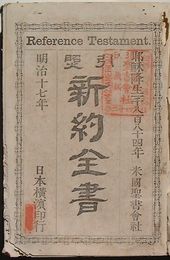 Reference Testament.
耶穌降生一千八百八十四年 米國聖書會社
引照
新約全書
明治十七年 日本横濱印行